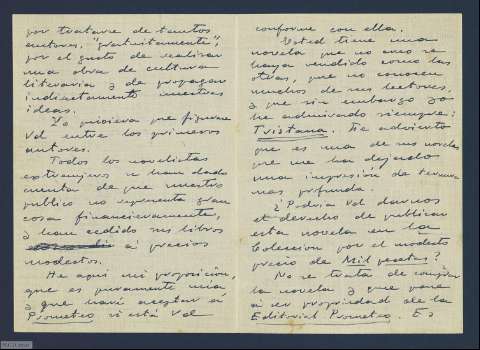 por tratarse de tantos
autores, "gratuitamente",
por el gusto de realizar
una obra de cultura
literaria y de propagar
indirectamente nuestras
ideas.
Yo quisiera que figurase
Vd entre los primeros
autores.
Todos los novelistas
extranjeros se han dado
cuenta de que nuestro
publico no representa gran
cosa financieramente,
y han cedido sus libros
á precios
modestos.
He aqui mi proposición,
que es puramente mia
y que haré aceptar á
Prometeo si está Vd
conforme con ella.
Usted tiene una
novela que no creo se
haya vendido como las
otras, que no conocen
muchos de sus lectores,
y que sin embargo yo
he admirado siempre:
Tristana. Le advierto
que es una de sus novelas
que me ha dejado
una impresión de ternura
mas profunda.
¿Podria Vd darnos
el derecho de publicar
esta novela en la
Coleccion por el modesto
precio de Mil pesetas?
No se trata de comprar
la novela y que pase
á ser propiedad de la
Editorial Prometeo. Es